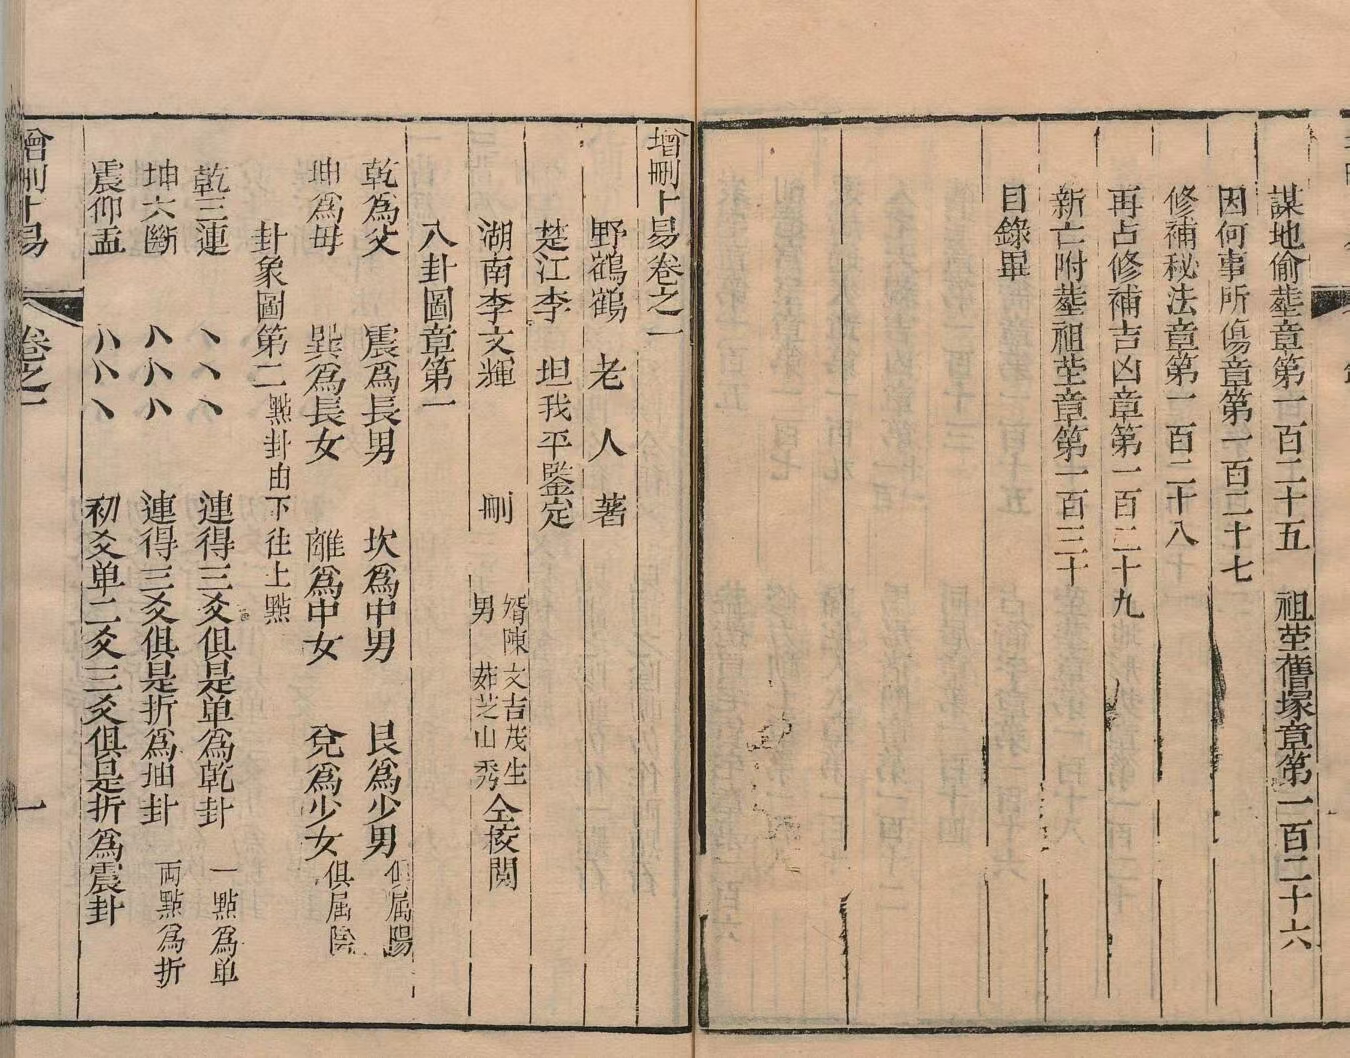 謀地偷塟章第一百二十五　祖塋舊塚章第一百二十六
因何事所傷章第一百二十七
修補秘法章第一百二十八
再占修補吉凶章第一百二十九
新亡附塟祖塋章第一百三十
目錄畢
增刪卜易卷之一
野鶴老人著
楚江李坦我平鑒定
湖南李文輝刪　婿陳文吉茂生　男茹芝山秀　仝挍閱
八卦圖章第一
乾為父　震為長男　坎為中男　艮為少男　俱属陽
坤為母　巽為長女　離為中女　兌為少女　俱属陰
卦象圖第二　點卦由下往上點
乾三連　丶丶丶　連得三爻俱是单為乾卦　一點為单
坤六斷　八八八　連得三爻俱是折為坤卦　両點為折
震仰盂　八八丶　初爻单二爻三爻俱是折為震卦
增刪卜易　卷之一　一